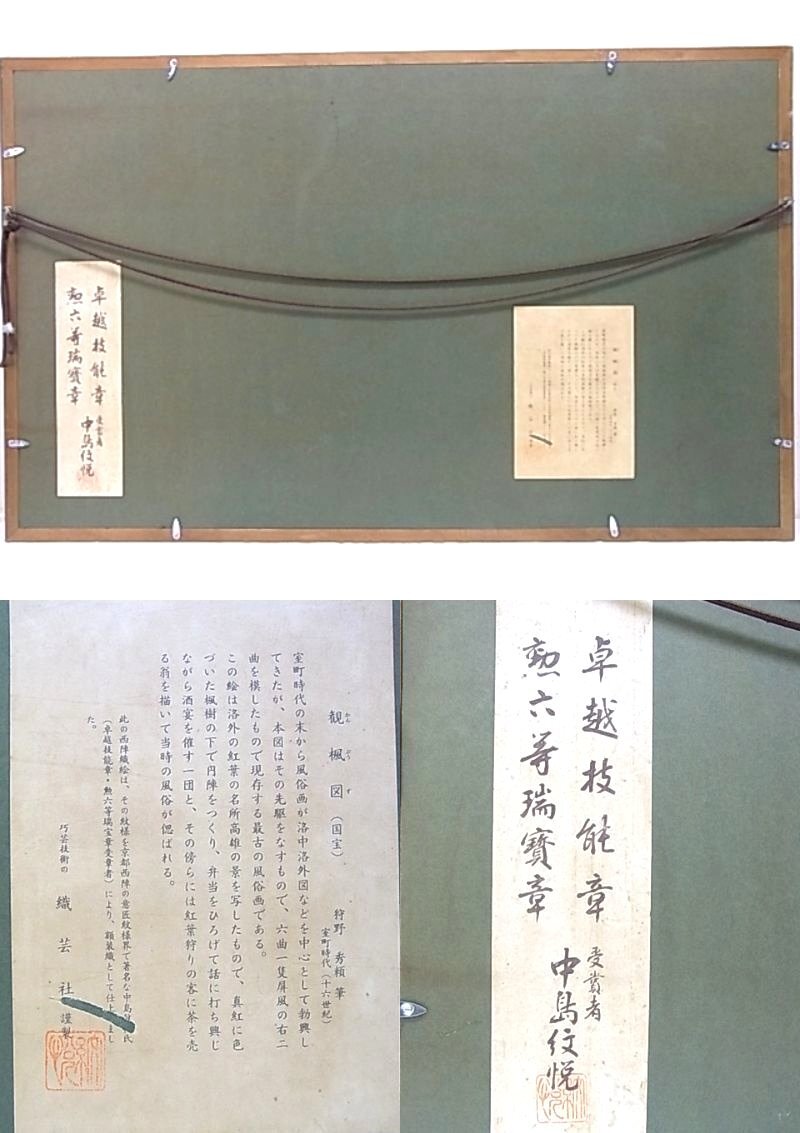 卓越技能章
勲六等瑞寶章
受賞者
中島紋悦
観楓図（国宝）
かんぷうず
狩野秀頼筆
室町時代（十六世紀）
室町時代の末から風俗画が洛中洛外図などを中心として勃興し
てきたが、本図はその先駆をなすもので、六曲一隻屏風の右二
曲を模したもので現存する最古の風俗画である。
この絵は洛外の紅葉の名所高雄の景を写したもので、真紅に色
づいた楓樹の下で円陣をつくり、弁当をひろげて話に打ち興じ
ながら酒宴を催す一団と、その傍らには紅葉狩りの客に茶を売
る翁を描いて当時の風俗が偲ばれる。
此の西陣織絵は、その紋様を京都西陣の意匠紋様界で著名な中島
氏
（卓越技能章・勲六等瑞宝章受章者）により、額装織として仕上
まし
た。
巧芸技術の
織芸社
謹製
卓越技能章
勲六等瑞寶章
受賞者
中島紋悦